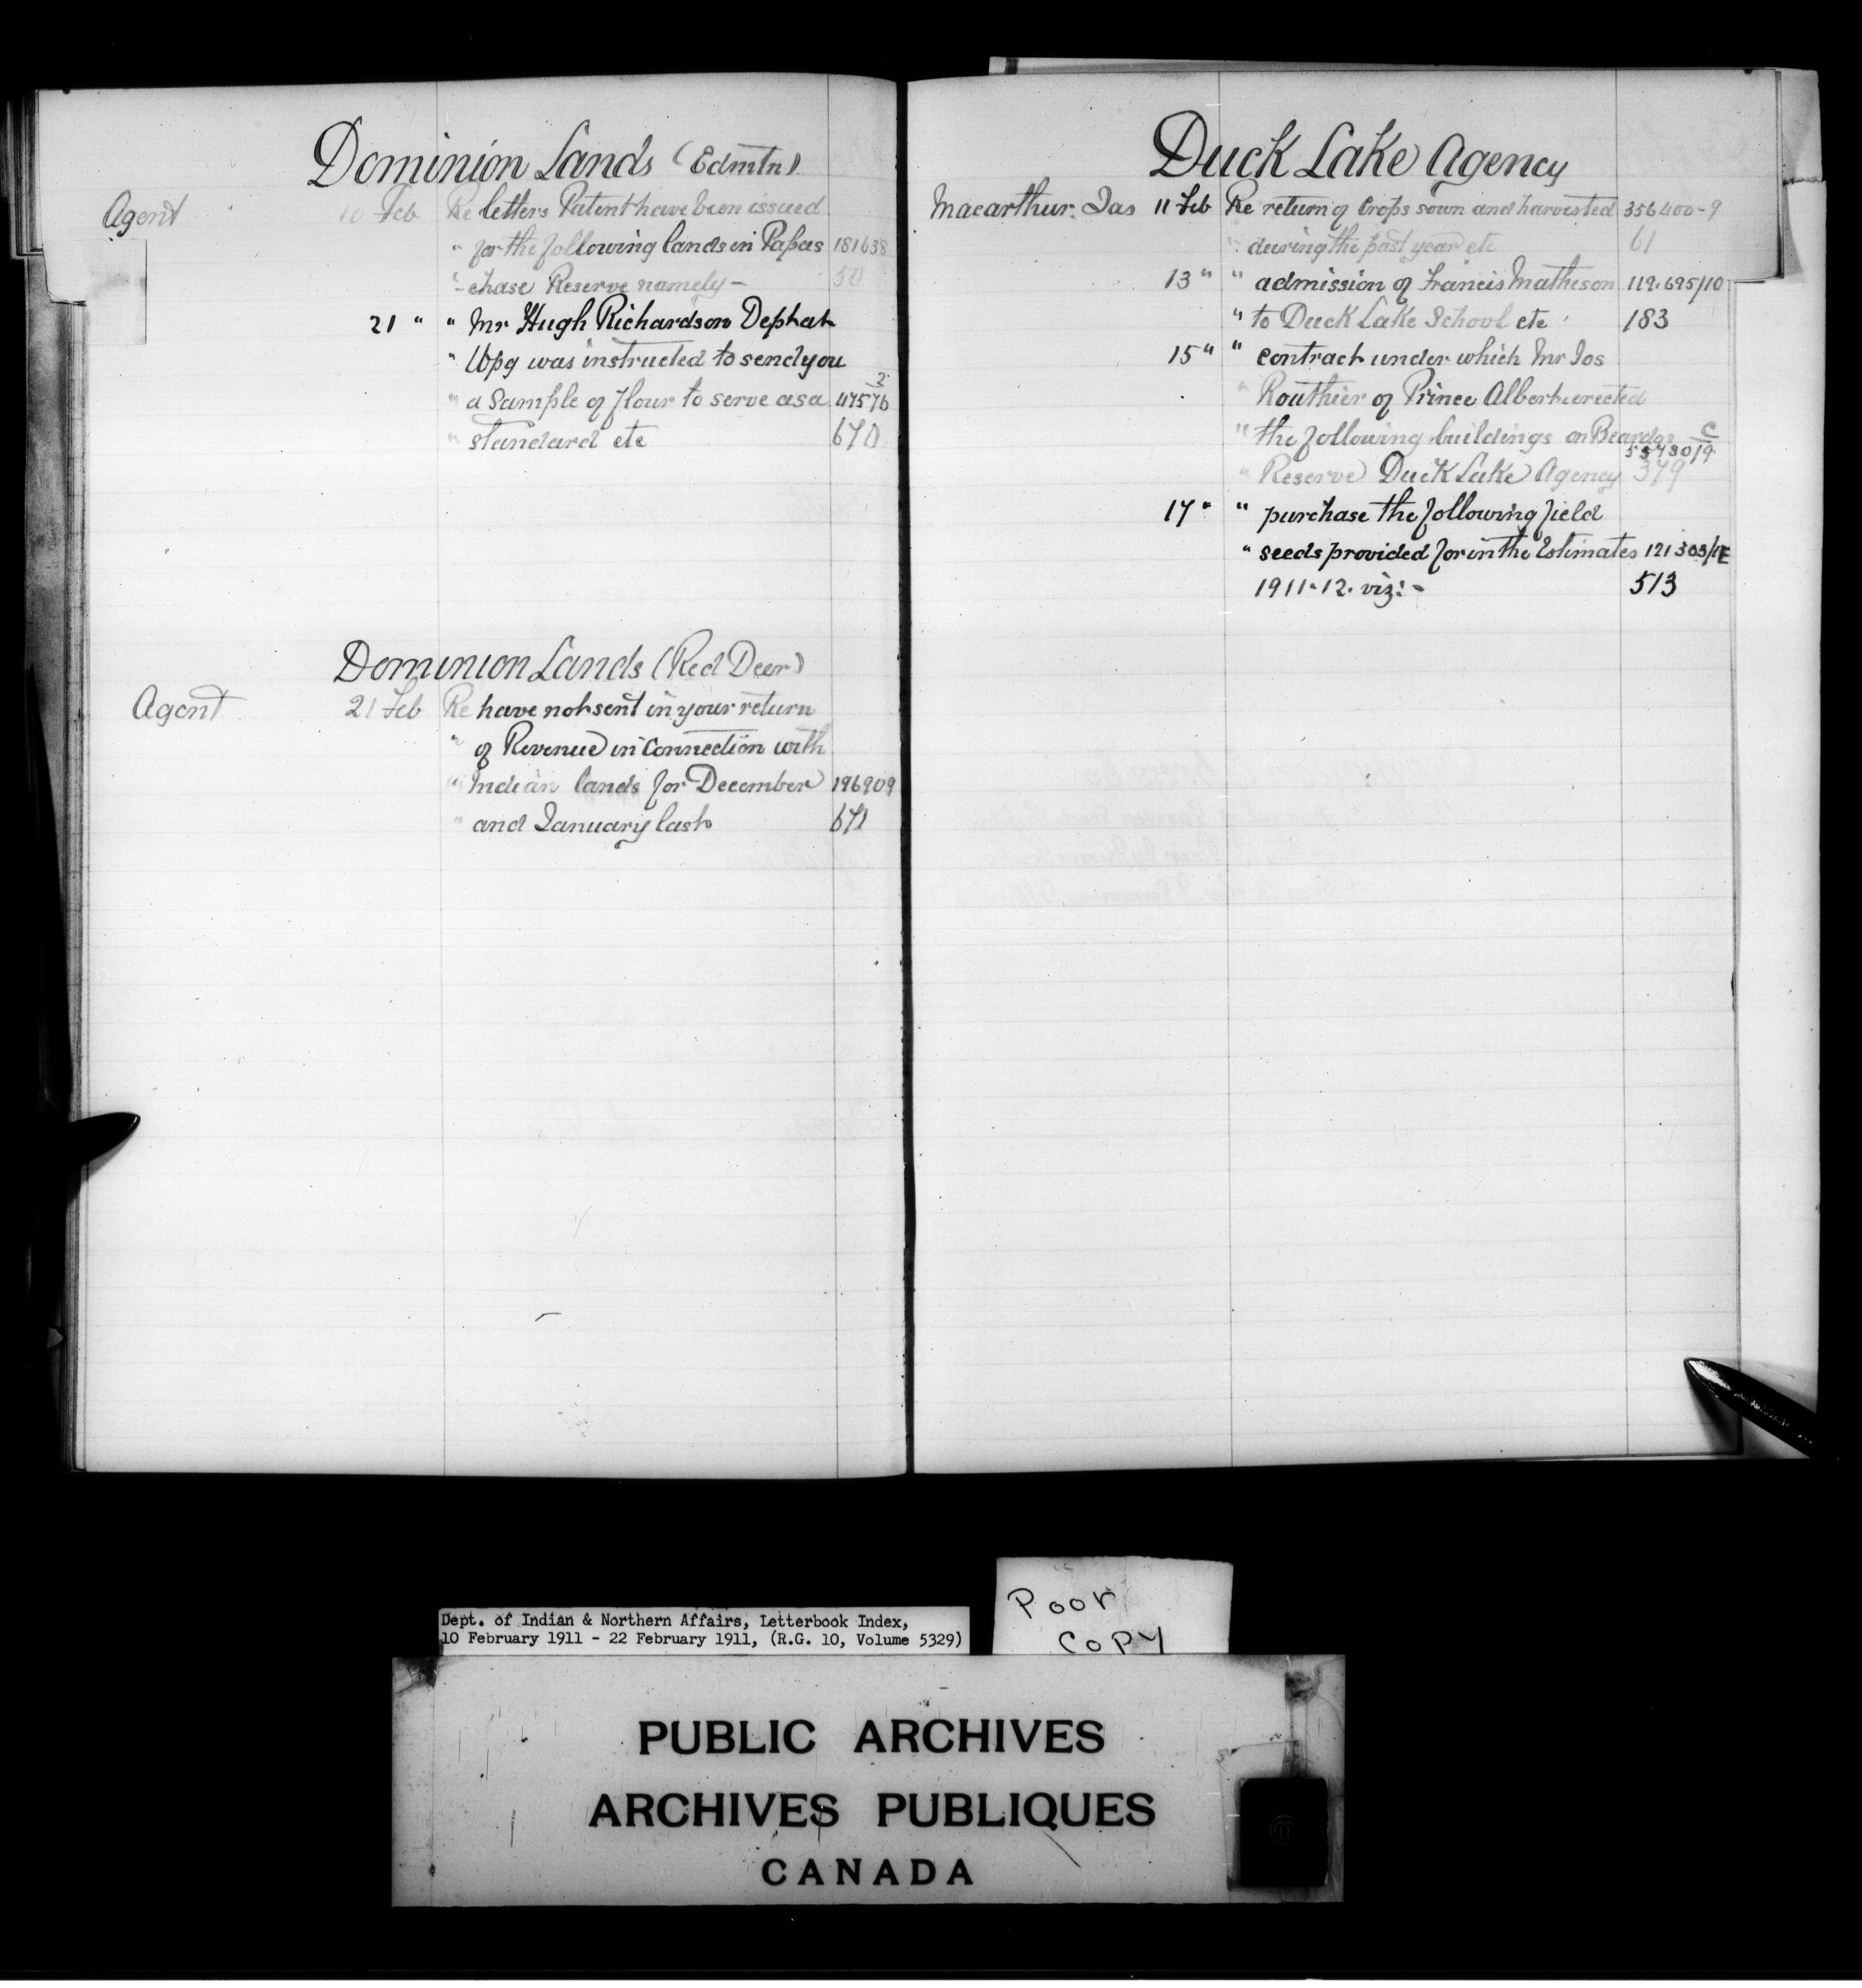 Dominion Lands (Edmtn)
Agent 10 Feb Re letters Patent have been issued
" for the following lands in Papas 181638
" chase Reserve namely - 50
21 " " Mr Hugh Richardson Dept at
" Wpg was instructed to send you
" a Sample of flour to serve as a 47576 2
" standard etc 670
Dominion Lands (Red Deer)
Agent 21 Feb Re have not sent in your return
" of Revenue in Connection with
" Indian lands for December 196909
" and January last 671
Duck Lake Agency
Macarthur. Jas 11 Feb Re return of Crops sown and harvested 356400-9
" during the past year etc 61
13 " " admission of Francis Matheson 112.695/10
" to Duck Lake School etc 183
15 " " contract under which Mr Jos
" Routhier of Prince Albert erected
" the following buildings on Beardys C
557801/9
" Reserve Duck Lake Agency 379
17 " " purchase the following field
" seeds provided for in the Estimates 121303/1E
1911-12. viz:- 513
Dept. of Indian & Northern Affairs, Letterbook Index,
10 February 1911 - 22 February 1911, (R.G. 10, Volume 5329)
Poor
Copy
PUBLIC ARCHIVES
ARCHIVES PUBLIQUES
CANADA